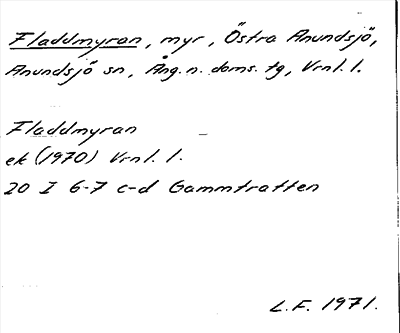 Fladdmyran, myr, Östra Anundsjö,
Anundsjö sn, Ång. n. doms. tg, Vrnl. l.
Fladdmyran
ek (1970) Vrnl. l.
20 I 6-7 c-d Gammtratten
L.F. 1971.